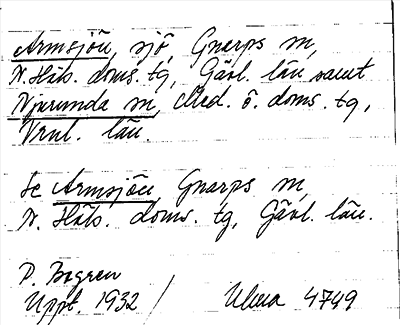 Armsjön, sjö, Gnarps sn,
N. Häls. doms. tg, Gävl. län samt
Njurunda sn, Med. ö. doms. tg,
Vrnl. län.
Se Armsjön Gnarps sn,
N. Häls. doms. tg, Gävl. län.
Uppt. 1932 / Ulma 4749